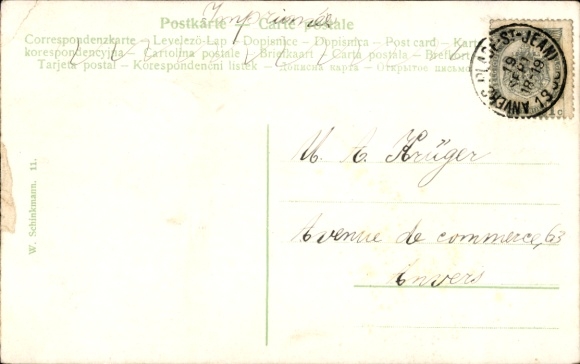 Postkarte – Carte postale
Imprimée
Correspondenzkarte – Levelező-Lap – Dopisnice – Dopisnica – Post card – Karta
korespondencyjna – Cartolina postale – Briefkaart – Carta postala – Brefkort
Tarjeta postal – Korespondenční lístek – Дописна карта – Открытое письмо
ANVERS (PLACE ST-JEAN)
9
18-19
M. A. Krüger
Avenue de commerce, 63
Anvers
W. Schinkmann. 11.